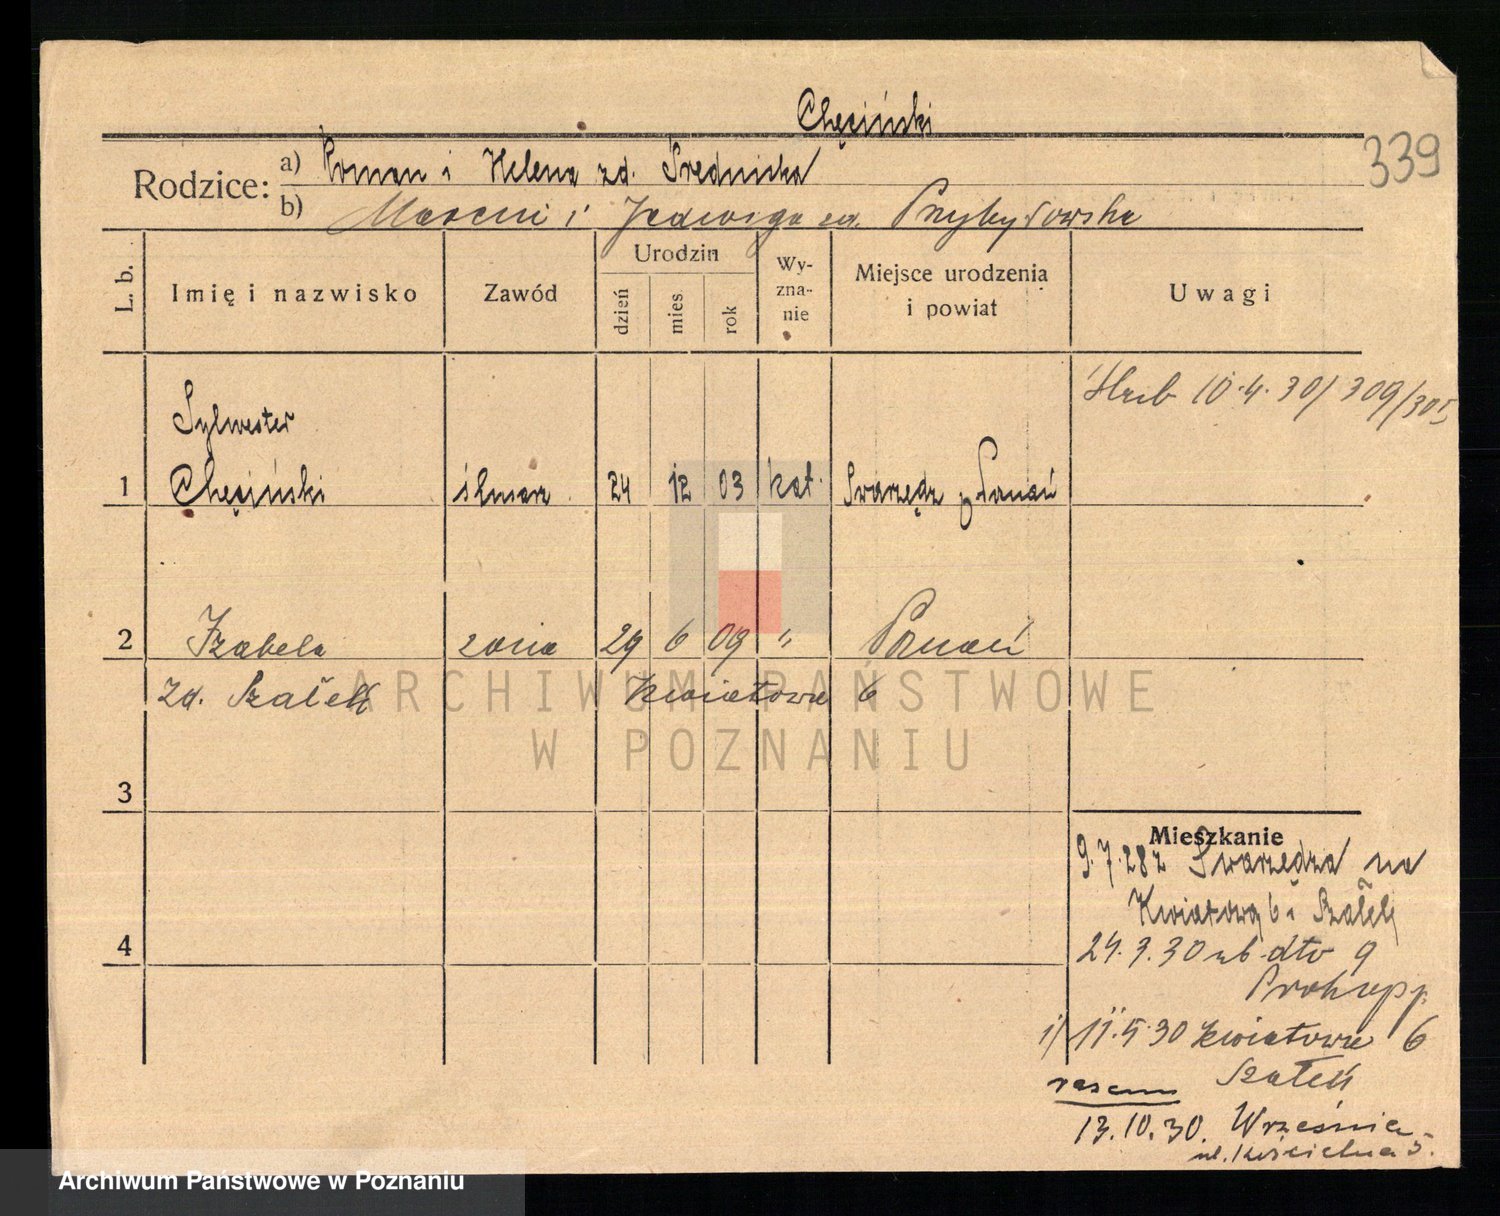 Chęciński
339
Rodzice: a) Roman i Helena zd. Średnicka
b) Marcin i Jadwiga zd. Przybyłowska
L. b.
Imię i nazwisko
Zawód
Urodzin
dzień
mies
rok
Wy-
zna-
nie
Miejsce urodzenia
i powiat
Uwagi
10.4.30/309/305
Sylwester
1 Chęciński ślusarz 24 12 03 kat. Swarzędz p Poznań
2 Izabela żona 29 6 09 " Poznań
zd. Szałek Kwiatowa 6
ARCHIWUM PAŃSTWOWE
W POZNANIU
3
Mieszkanie
9.7.28 z Swarzędza na
Kwiatową 6 Szałek
4
24.3.30 dto 9
Prokopp
11.5.30 Kwiatowa 6
Szałek
razem
13.10.30. Września
ul. Kościelna 5.
Archiwum Państwowe w Poznaniu